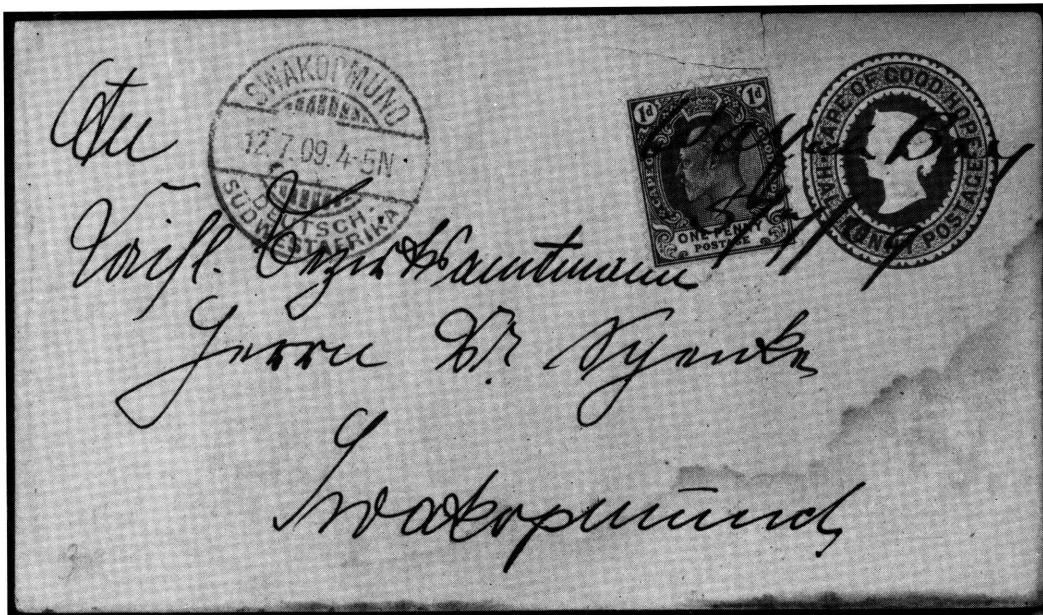 SWAKOPMUND
12.7.09.4-5N
DEUTSCH-
SÜDWESTAFRIKA
1d 1d
CAPE OF GOOD HOPE
ONE PENNY
POSTAGE
CAPE OF GOOD HOPE
HALF PENNY POSTAGE
Bay
An
Kaiserl. Bezirksamtmann
Herrn Dr
Swakopmund